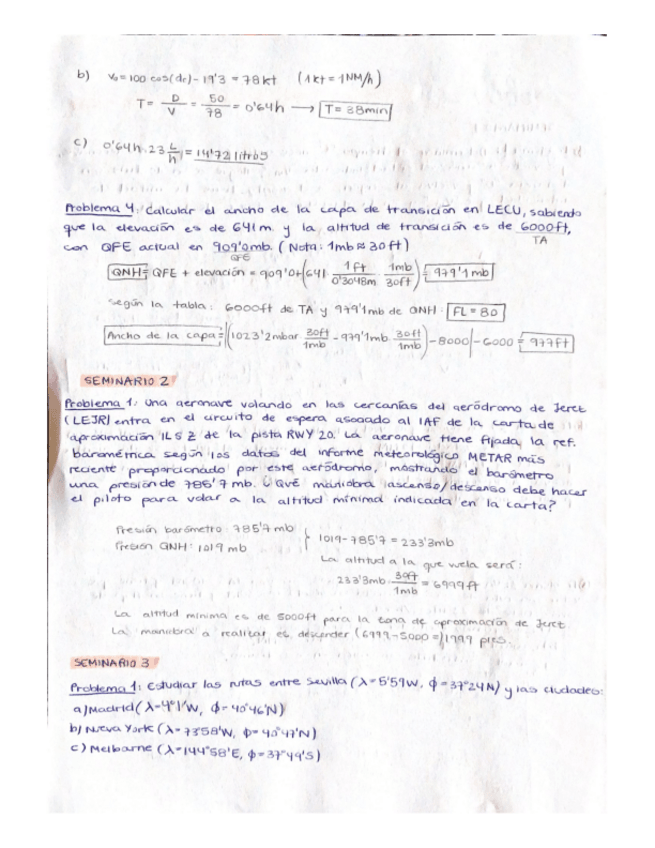 b) V₀ = 100 cos(dc) - 19'3 = 78 kt (1kt = 1NM/h)
T = D/V = 50/78 = 0'64h → T = 38min
c) 0'64h · 23 L/h = 14'72 litros
Problema 4: Calcular el ancho de la capa de transición en LECU, sabiendo
que la elevación es de 641m y la altitud de transición es de 6000ft,
TA
con QFE actual en 909'0mb. (Nota: 1mb ≈ 30ft)
QFE
QNH = QFE + elevación = 909'0 + (641 · 1ft/0'3048m · 1mb/30ft) = 979'1 mb
Según la tabla: 6000ft de TA y 979'1mb de QNH: FL = 80
Ancho de la capa = |(1023'2mbar 30ft/1mb - 979'1mb · 30ft/1mb) - 8000| - 6000 = 977ft
SEMINARIO 2
Problema 1: Una aeronave volando en las cercanías del aeródromo de Jerez
(LEJR) entra en el circuito de espera asociado al IAF de la carta de
aproximación ILS Z de la pista RWY 20. La aeronave tiene fijada la ref.
barométrica según los datos del informe meteorológico METAR más
reciente proporcionado por este aeródromo, mostrando el barómetro
una presión de 785'7 mb. ¿Qué maniobra ascenso/descenso debe hacer
el piloto para volar a la altitud mínima indicada en la carta?
Presión barómetro: 785'7 mb
Presión QNH: 1019 mb
} 1019 - 785'7 = 233'3mb
La altitud a la que vuela será:
233'3mb · 30ft/1mb = 6999ft
La altitud mínima es de 5000ft para la zona de aproximación de Jerez
La maniobra a realizar es descender (6999-5000=)1999 pies.
SEMINARIO 3
Problema 1: Estudiar las rutas entre Sevilla (λ=5°59W, φ=37°24N) y las ciudades:
a) Madrid (λ=4°1'W, φ=40°46'N)
b) Nueva York (λ=73°58'W, φ=40°47'N)
c) Melbarne (λ=144°58'E, φ=37°49'S)